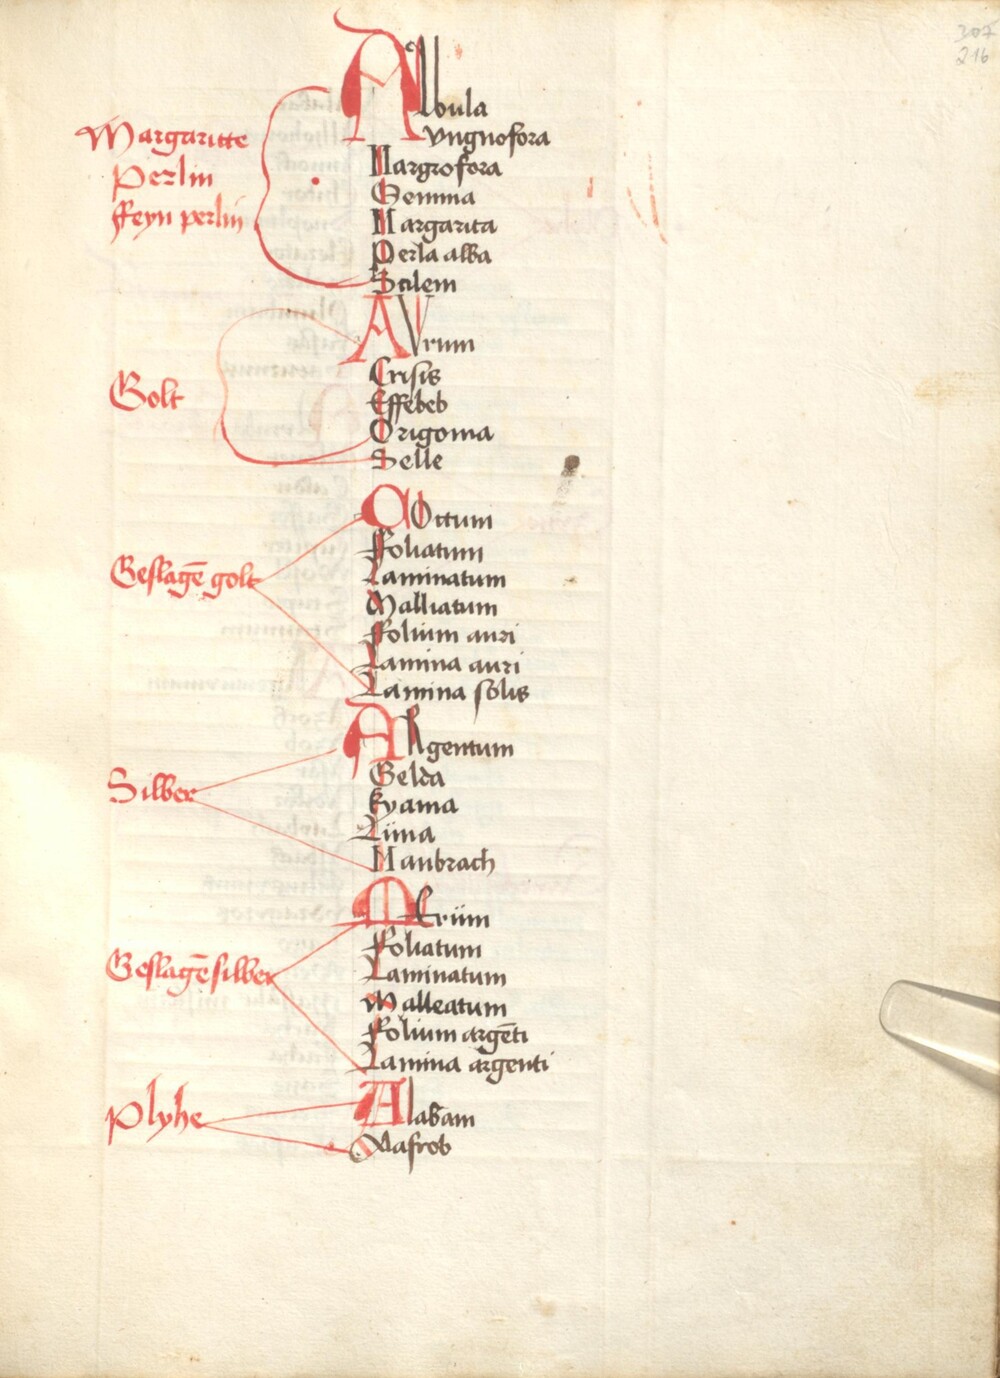 307
216
Margaritte
Perlin
ffeyn perlin
Albula
Yngnofora
Margrofora
Gemma
Margarita
Perla alba
Stilem
Golt
AVrum
Crisis
Effebeb
Origoma
Selle
Geslagē golt
COctum
Foliatum
Laminatum
Malliatum
Folium auri
Lamina auri
Lamina solis
Silber
ARgentum
Gelda
kyama
Lima
Manbrach
Geslagē silber
MErüm
Foliatum
Laminatum
Malleatum
Folium argēti
Lamina argenti
Plyhe
Alabam
Aafrob